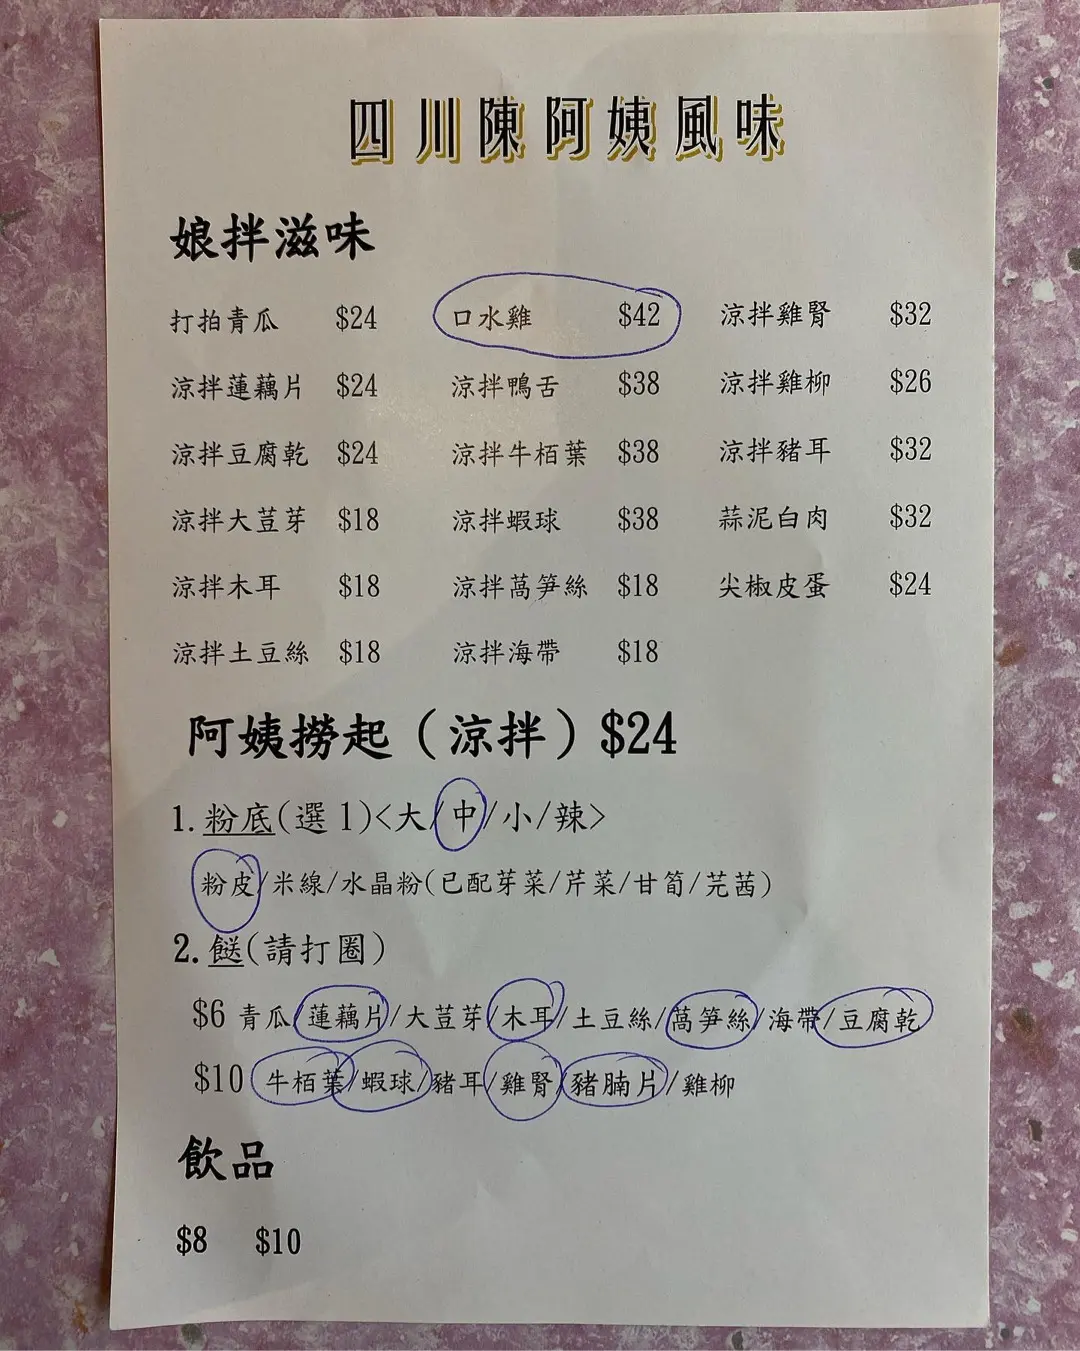 四川陳阿姨風味
娘拌滋味
打拍青瓜 $24 口水雞 $42 涼拌雞腎 $32
涼拌蓮藕片 $24 涼拌鴨舌 $38 涼拌雞柳 $26
涼拌豆腐乾 $24 涼拌牛栢葉 $38 涼拌豬耳 $32
涼拌大荳芽 $18 涼拌蝦球 $38 蒜泥白肉 $32
涼拌木耳 $18 涼拌萵笋絲 $18 尖椒皮蛋 $24
涼拌土豆絲 $18 涼拌海帶 $18
阿姨撈起（涼拌）$24
1. 粉底(選1)<大/中/小/辣>
粉皮/米線/水晶粉(已配芽菜/芹菜/甘筍/芫茜)
2. 餸(請打圈)
$6 青瓜/蓮藕片/大荳芽/木耳/土豆絲/萵笋絲/海帶/豆腐乾
$10 牛栢葉/蝦球/豬耳/雞腎/豬腩片/雞柳
飲品
$8 $10